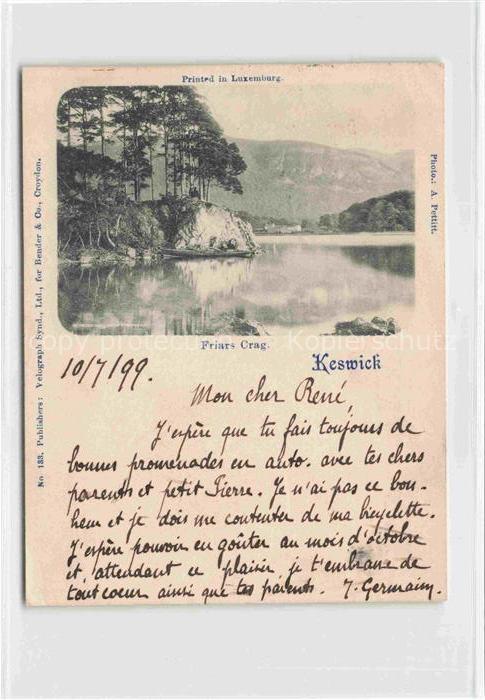 Printed in Luxemburg.
No 133. Publishers: Velograph Synd., Ltd., for Bender & Co., Croydon.
Photo.: A. Pettitt.
Friars Crag.
Keswick
10/7/99.
Mon cher René,
J'espère que tu fais toujours de
bonnes promenades en auto. avec tes chers
parents et petit Pierre. Je n'ai pas ce bon-
heur et je dois me contenter de ma bicyclette.
J'espère pouvoir en goûter au mois d'octobre
et, attendant ce plaisir, je t'embrasse de
tout coeur ainsi que tes parents. J. Germain.
copy protection · Kopierschutz